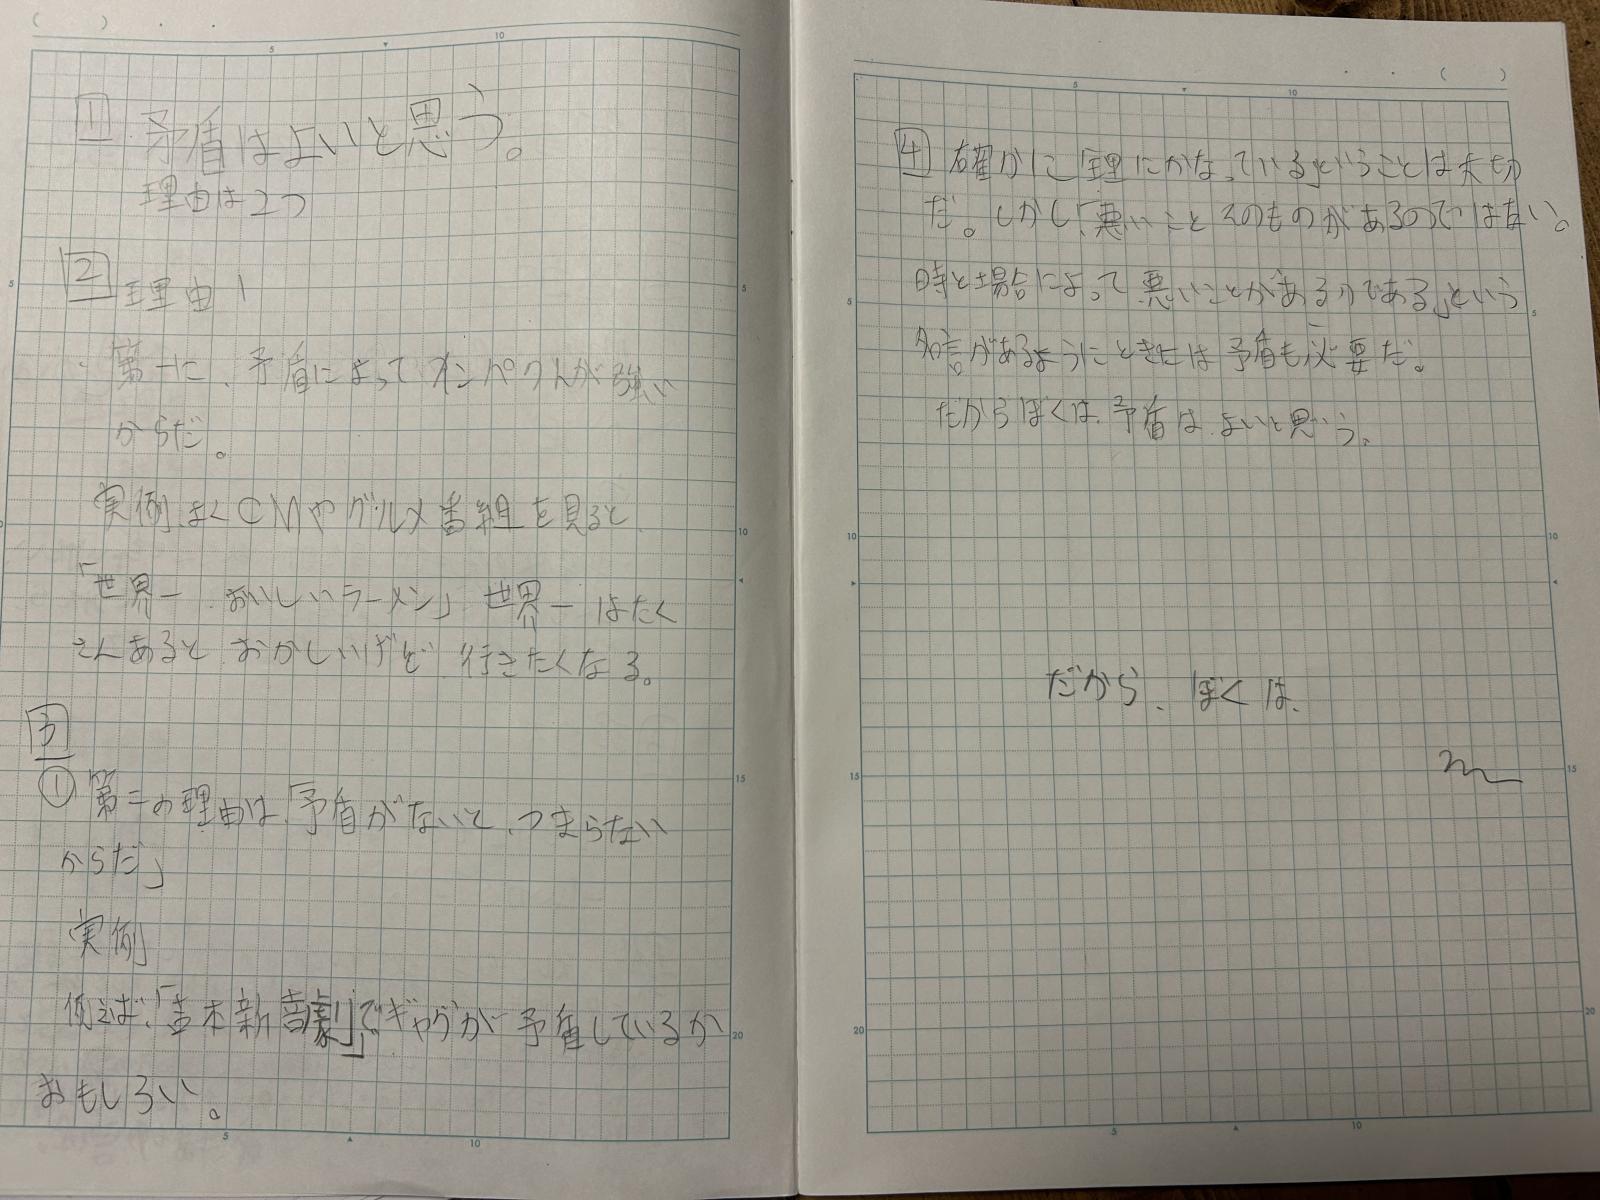 ( )
5
10
1 矛盾はよいと思う。
理由は2つ
2 理由1
第一に、矛盾によってインパクトが強い
からだ。
実例、よくCMやグルメ番組を見ると、
「世界一おいしいラーメン」世界一はたく
さんあるとおかしいけど、行きたくなる。
3
① 第二の理由は、「矛盾がないと、つまらない
からだ」
実例
例えば、「吉本新喜劇」でギャグが矛盾しているが
おもしろい。
5
10
5
10
15
20
( )
5
10
4 確かに「理にかなっている」ということは大切
だ。しかし、「悪いことそのものがあるのではない。
時と場合によって悪いことがあるのである」という
名言があるようにときには矛盾も必要だ。
だからぼくは、矛盾は、よいと思う。
だから、ぼくは、
5
10
5
10
15
20